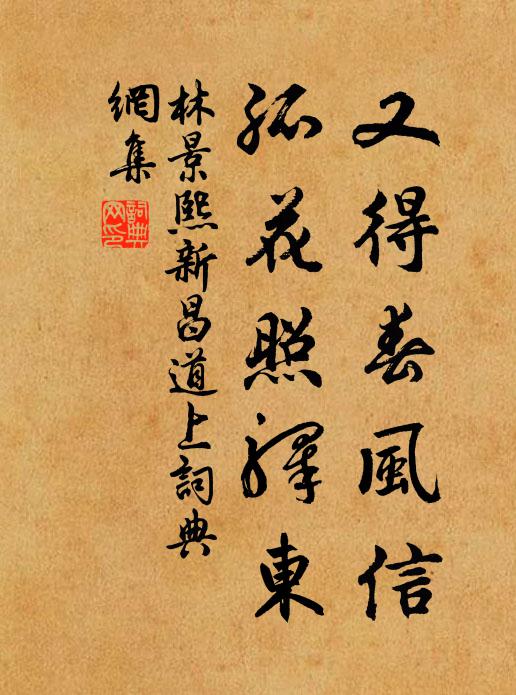 又得春風信
孤花照驛東
林景熙新昌道上詞典
網集
詞典
网印